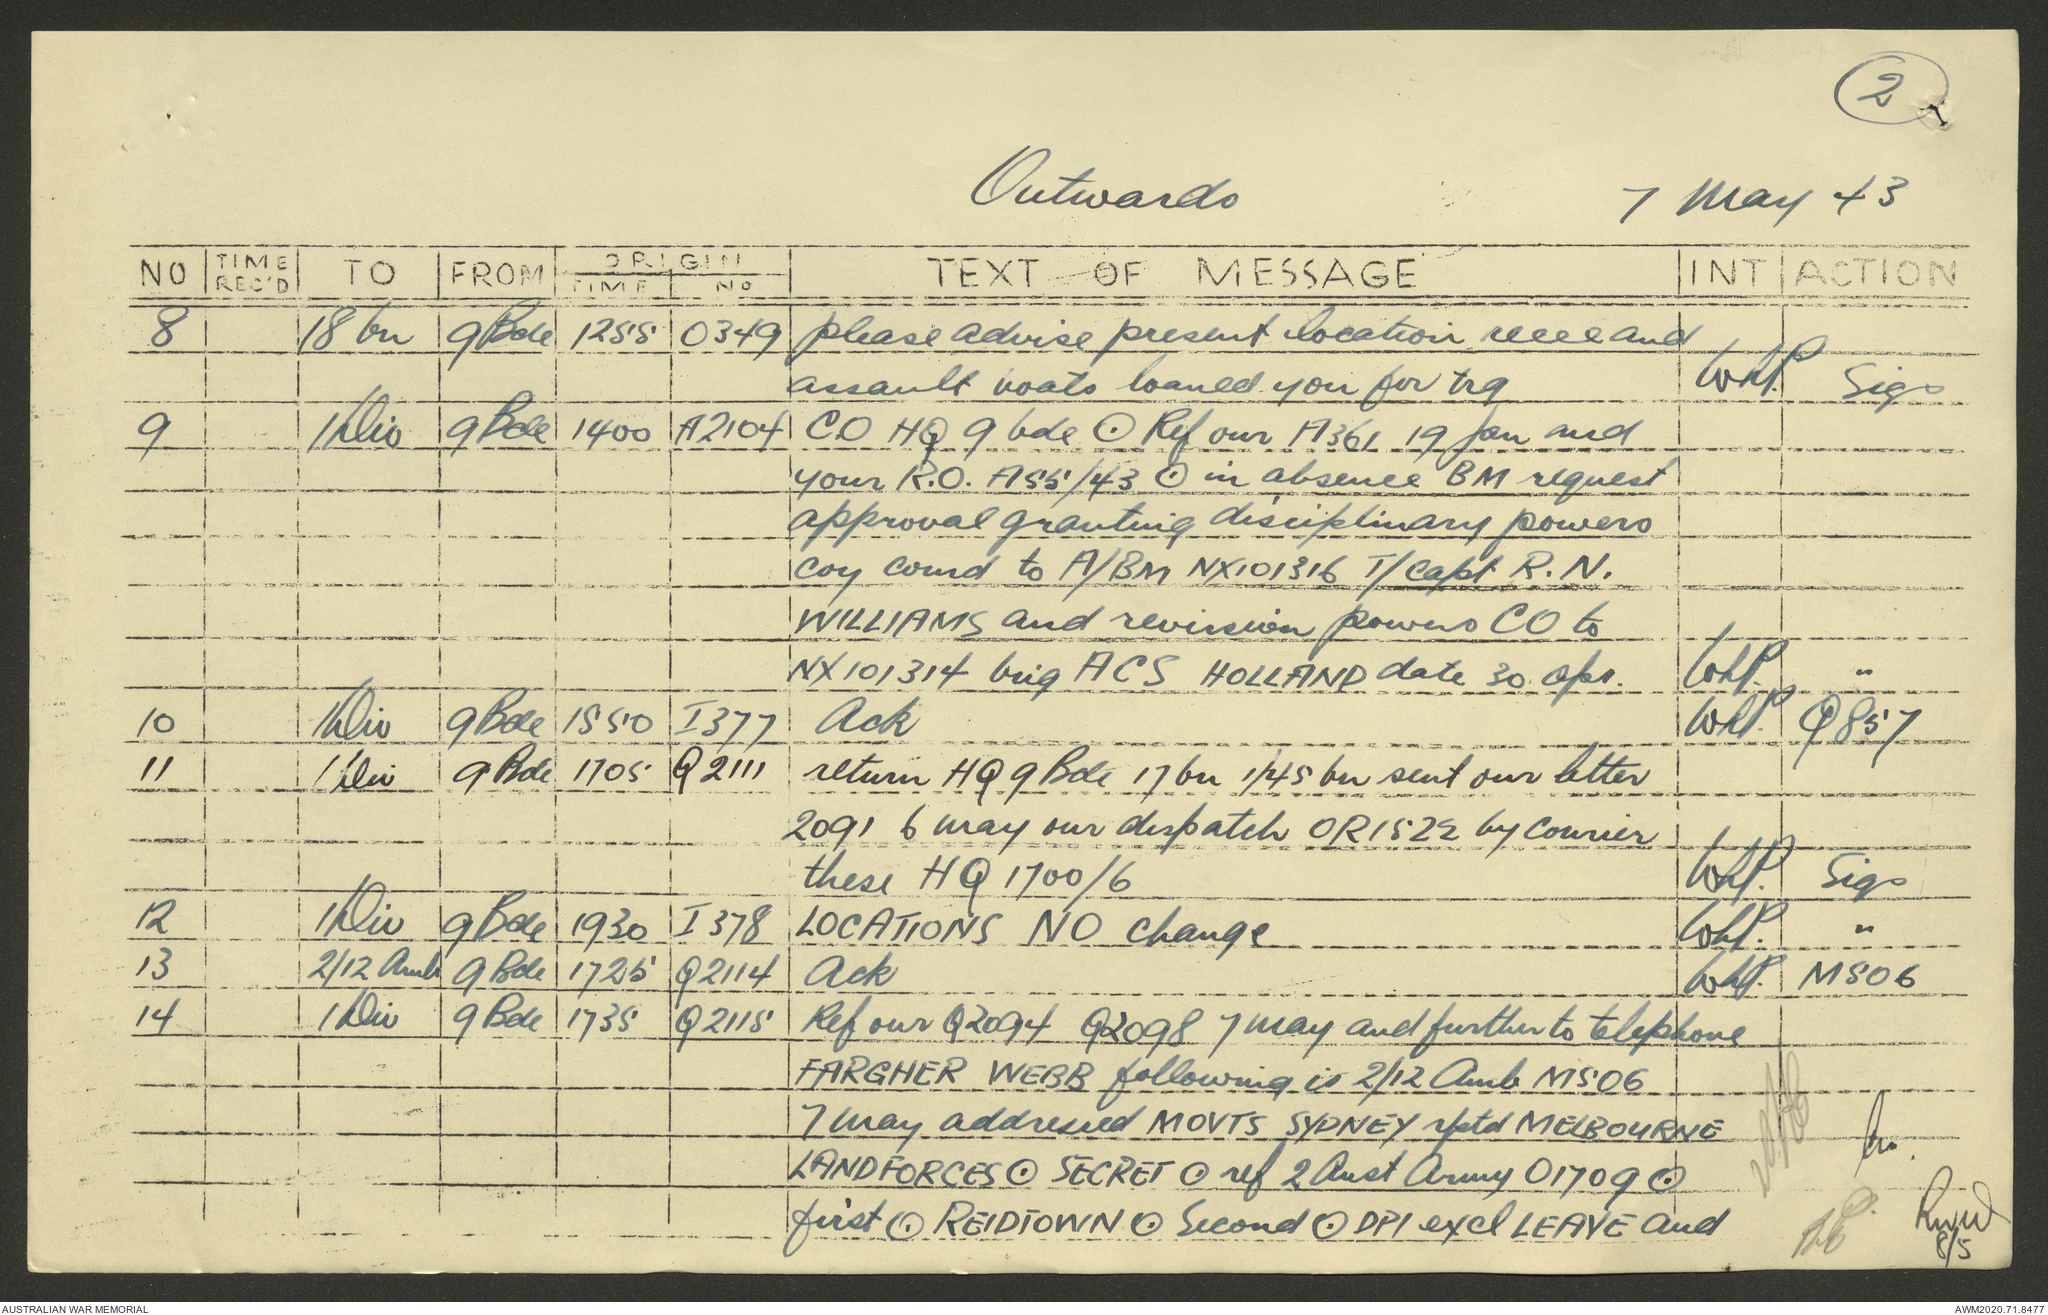 2
Outwards 7 May 43
NO TIME REC'D TO FROM ORIGIN TIME No TEXT OF MESSAGE INT ACTION
8 18 bn 9 Bde 1255 O349 please advise present location recce and
assault boats loaned you for trg WhP. Sigs
9 1 Div 9 Bde 1400 A2104 CO HQ 9 bde ⊙ Ref our A361 19 Jan and
your R.O. A55/43 ⊙ in absence BM request
approval granting disciplinary powers
coy comd to A/BM NX101316 T/Capt R.N.
WILLIAMS and revision powers CO to
NX101314 brig ACS HOLLAND date 30 apr. WhP. "
10 1 Div 9 Bde 1550 I377 Ack WhP. Q857
11 1 Div 9 Bde 1705 Q2111 return HQ 9 Bde 17 bn 1/45 bn sent our letter
2091 6 may our despatch OR1522 by courier
these HQ 1700/6 WhP. Sigs
12 1 Div 9 Bde 1930 I378 LOCATIONS NO change WhP. "
13 2/12 Amb 9 Bde 1725 Q2114 Ack WhP. MS06
14 1 Div 9 Bde 1735 Q2115 Ref our Q2094 Q2098 7 may and further to telephone
FARGHER WEBB following is 2/12 Amb MS06
7 may addressed MOVTS SYDNEY rptd MELBOURNE
LANDFORCES ⊙ SECRET ⊙ ref 2 Aust Army O1709 ⊙
first ⊙ REIDTOWN ⊙ Second ⊙ DPI excl LEAVE and
8/5
AUSTRALIAN WAR MEMORIAL
AWM2020.71.8477